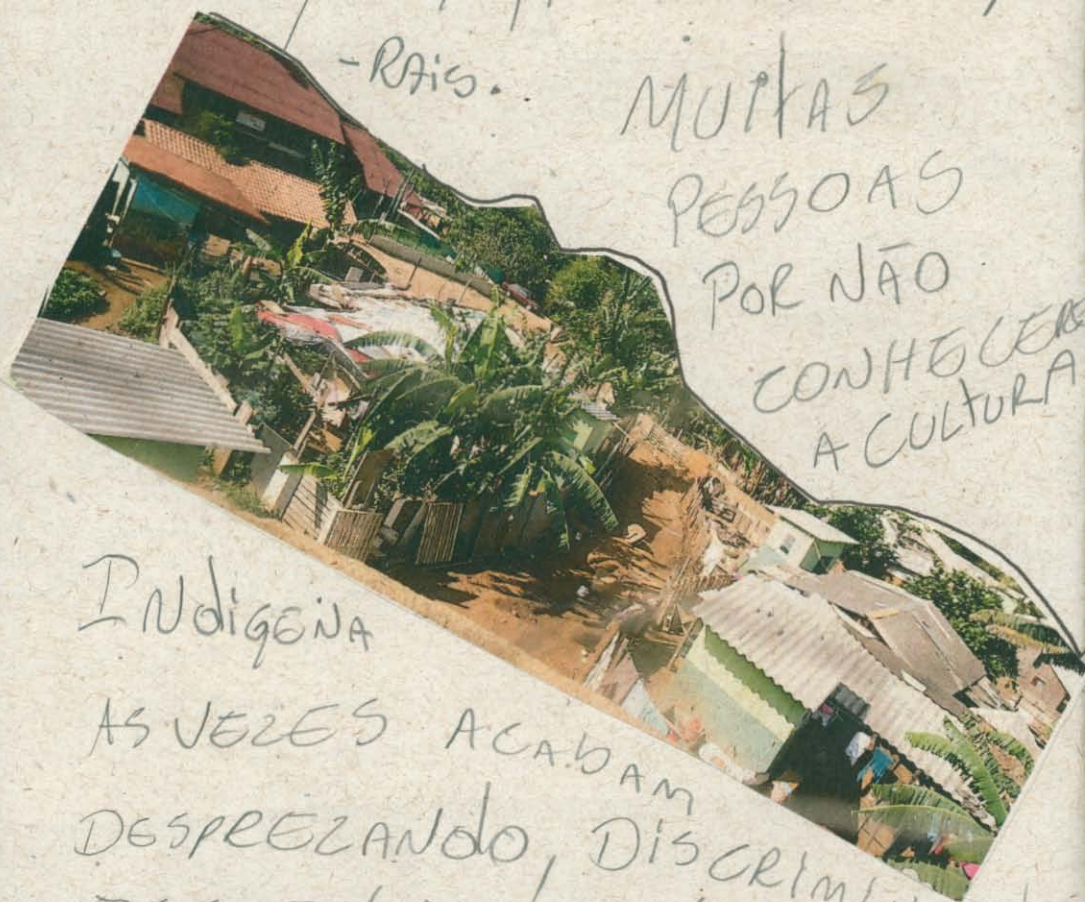 -RAis.
MUITAS
PESSOAS
POR NÃO
CONHECERE
A CULTURA
INdiGENA
AS VEZES ACABAM
DESPREZANdO, DISCRIMI